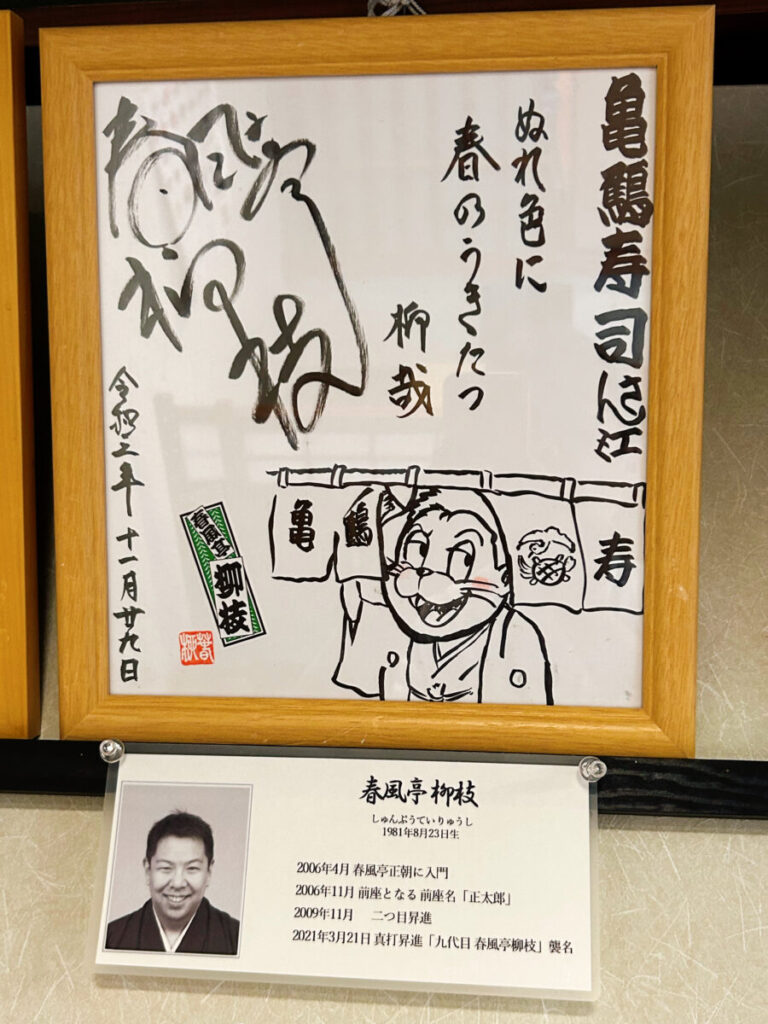 亀鶴寿司さん江
ぬれ色に
春のうきたつ
柳哉
春風亭
柳枝
令和三年 十一月廿九日
春風亭
柳枝
亀
鶴
寿
春風亭 柳枝
しゅんぷうていりゅうし
1981年8月23日生
2006年4月 春風亭正朝に入門
2006年11月 前座となる 前座名「正太郎」
2009年11月 二つ目昇進
2021年3月21日 真打昇進「九代目 春風亭柳枝」襲名